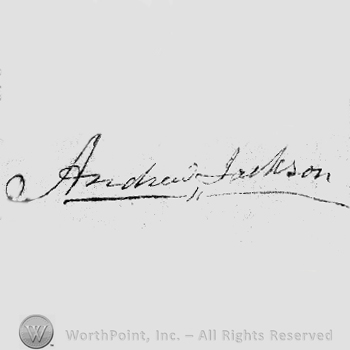 Andrew Jackson
W
WorthPoint, Inc. – All Rights Reserved